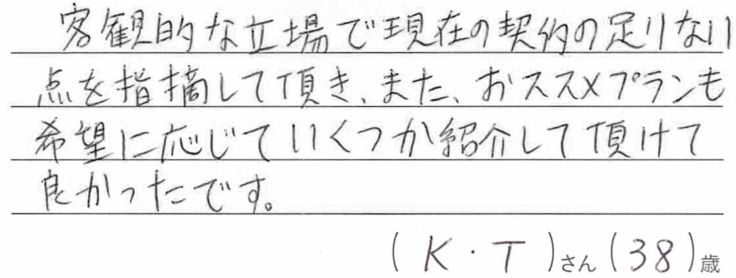 客観的な立場で現在の契約の足りない
点を指摘して頂き、また、おススメプランも
希望に応じていくつか紹介して頂けて
良かったです。
(K・T)さん(38)歳